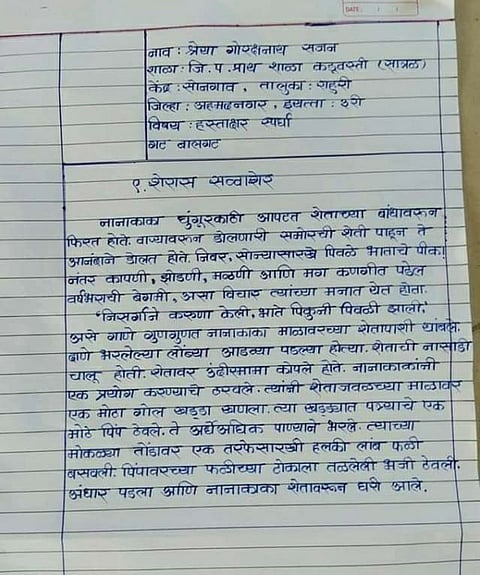 DATE:
नाव : श्रेया गोरक्षनाथ सजन
शाळा : जि.प.प्राथ शाळा कडूवस्ती (सात्रळ)
केंद्र : सोनगाव, तालुका : राहुरी
जिल्हा : अहमदनगर, इयत्ता : ३री
विषय : हस्ताक्षर स्पर्धा
गट बालगट
९. शेरास सव्वाशेर
नानाकाका घुंगूरकाठी आपटत शेताच्या बांधावरून
फिरत होते. वाऱ्यावरून डोलणारी समोरची शेती पाहून ते
आनंदाने डोलत होते. जिवर, सोन्यासारखे पिवळे भाताचे पीक!
नंतर कापणी, झोडणी, मळणी आणि मग कणगीत पडेल
वर्षभराची बेगमी, असा विचार त्यांच्या मनात येत होता.
'निसर्गाने करुणा केली, भाते पिकुनी पिवळी झाली,'
असे गाणे गुणगुणत नानाकाका माळावरच्या शेतापाशी थांबले.
दाणे भरलेल्या लोंब्या आडव्या पडल्या होत्या. शेताची नासाडी
चालू होती. शेतावर उंदीरमामा कोपले होते. नानाकाकांनी
एक प्रयोग करण्याचे ठरवले. त्यांनी शेताजवळच्या माळावर
एक मोठा गोल खड्डा खणला. त्या खड्ड्यात पत्र्याचे एक
मोठे पिंप ठेवले. ते अर्धेअधिक पाण्याने भरले. त्याच्या
मोकळ्या तोंडावर एक तरफेसारखी हलकी लांब फळी
बसवली. पिंपावरच्या फळीच्या टोकाला तळलेली भजी ठेवली.
अंधार पडला आणि नानाकाका शेतावरून घरी आले.